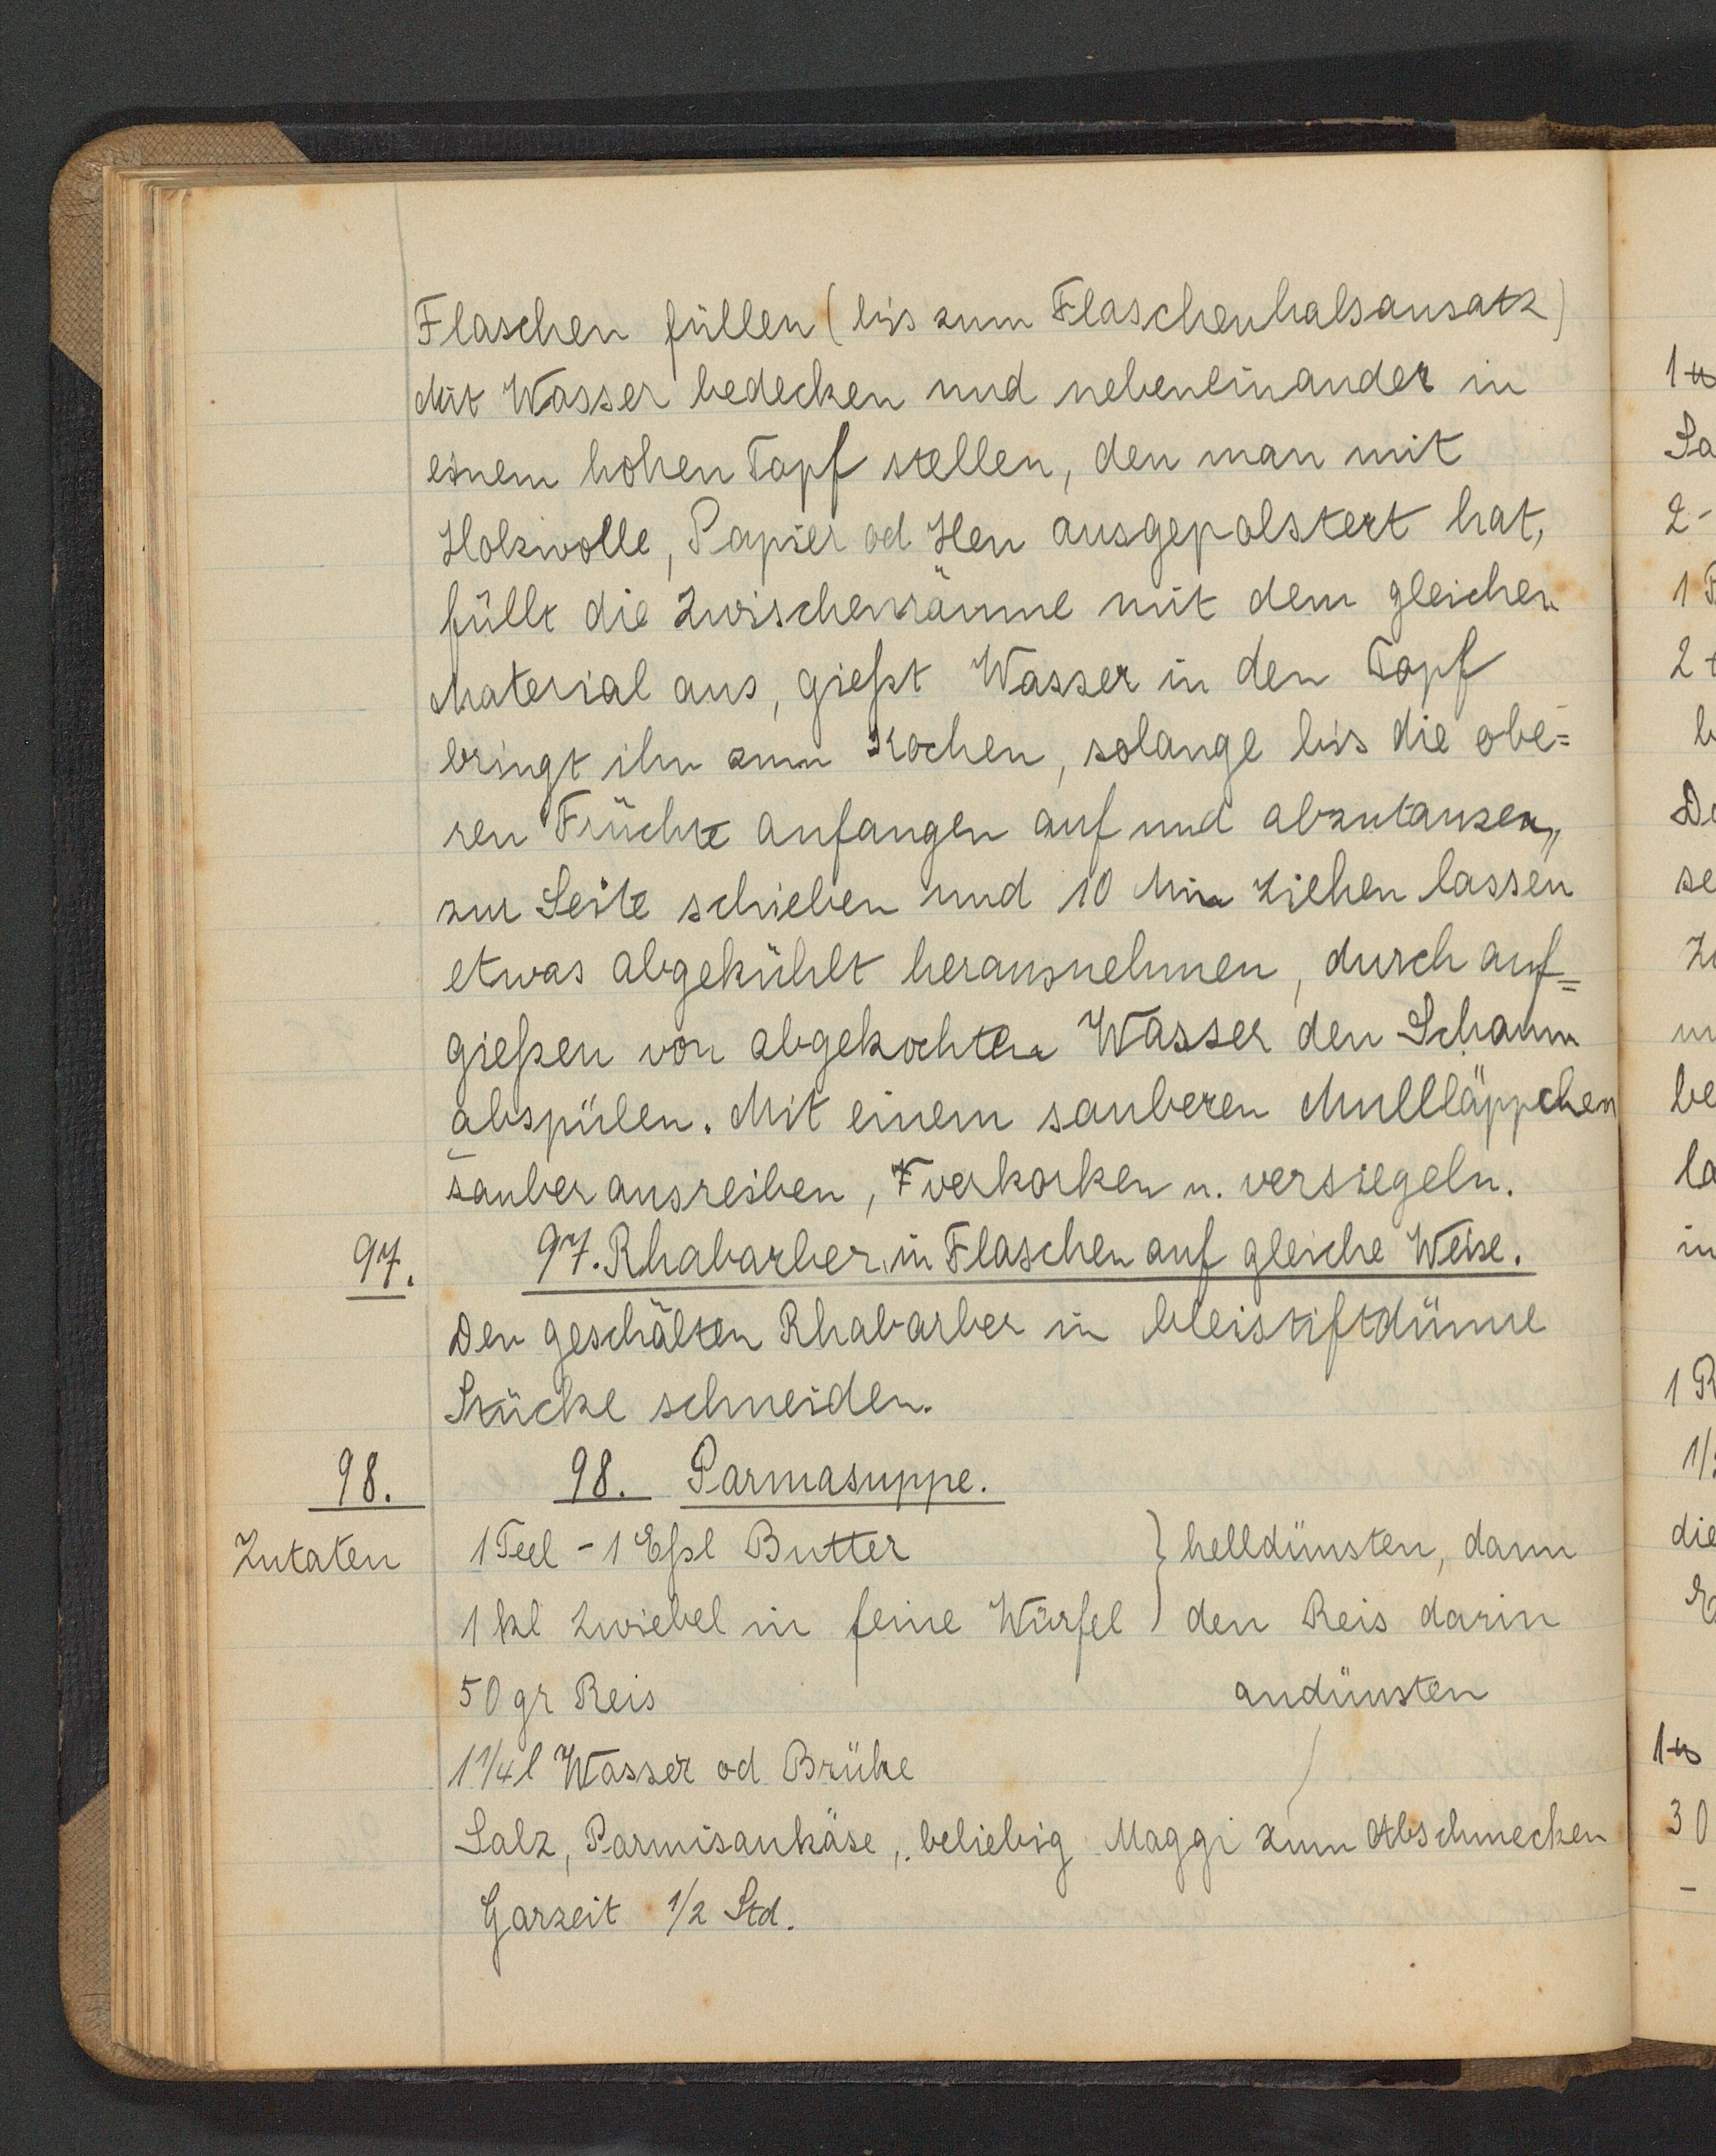 Flaschen füllen (bis zum Flaschenhalsansatz)
Mit Wasser bedecken und nebeneinander in
einem hohen Topf stellen, den man mit
Holzwolle, Papier od Heu ausgepolstert hat,
füllt die Zwischenräume mit dem gleichen
Material aus, gießt Wasser in den Topf
bringt ihn zum Kochen, solange bis die obe=
ren Früchte anfangen auf und abzutanzen,
zur Seite schieben und 10 Min ziehen lassen
etwas abgekühlt herausnehmen, durch auf=
gießen von abgekochten Wasser den Schaum
abspülen. Mit einem sauberen Mullläppchen
sauber ausreiben, verkorken u. versiegeln.
97. 97. Rhabarber in Flaschen auf gleiche Weise.
Den geschälten Rhabarber in bleistiftdünne
Stücke schneiden.
98. 98. Parmasuppe.
Zutaten 1 Teel - 1 Eßl Butter } helldünsten, dann
1 kl Zwiebel in feine Würfel } den Reis darin
50 gr Reis andünsten
1 1/4 l Wasser od Brühe
Salz, Parmisankäse, beliebig Maggi zum Abschmecken
Garzeit 1/2 Std.